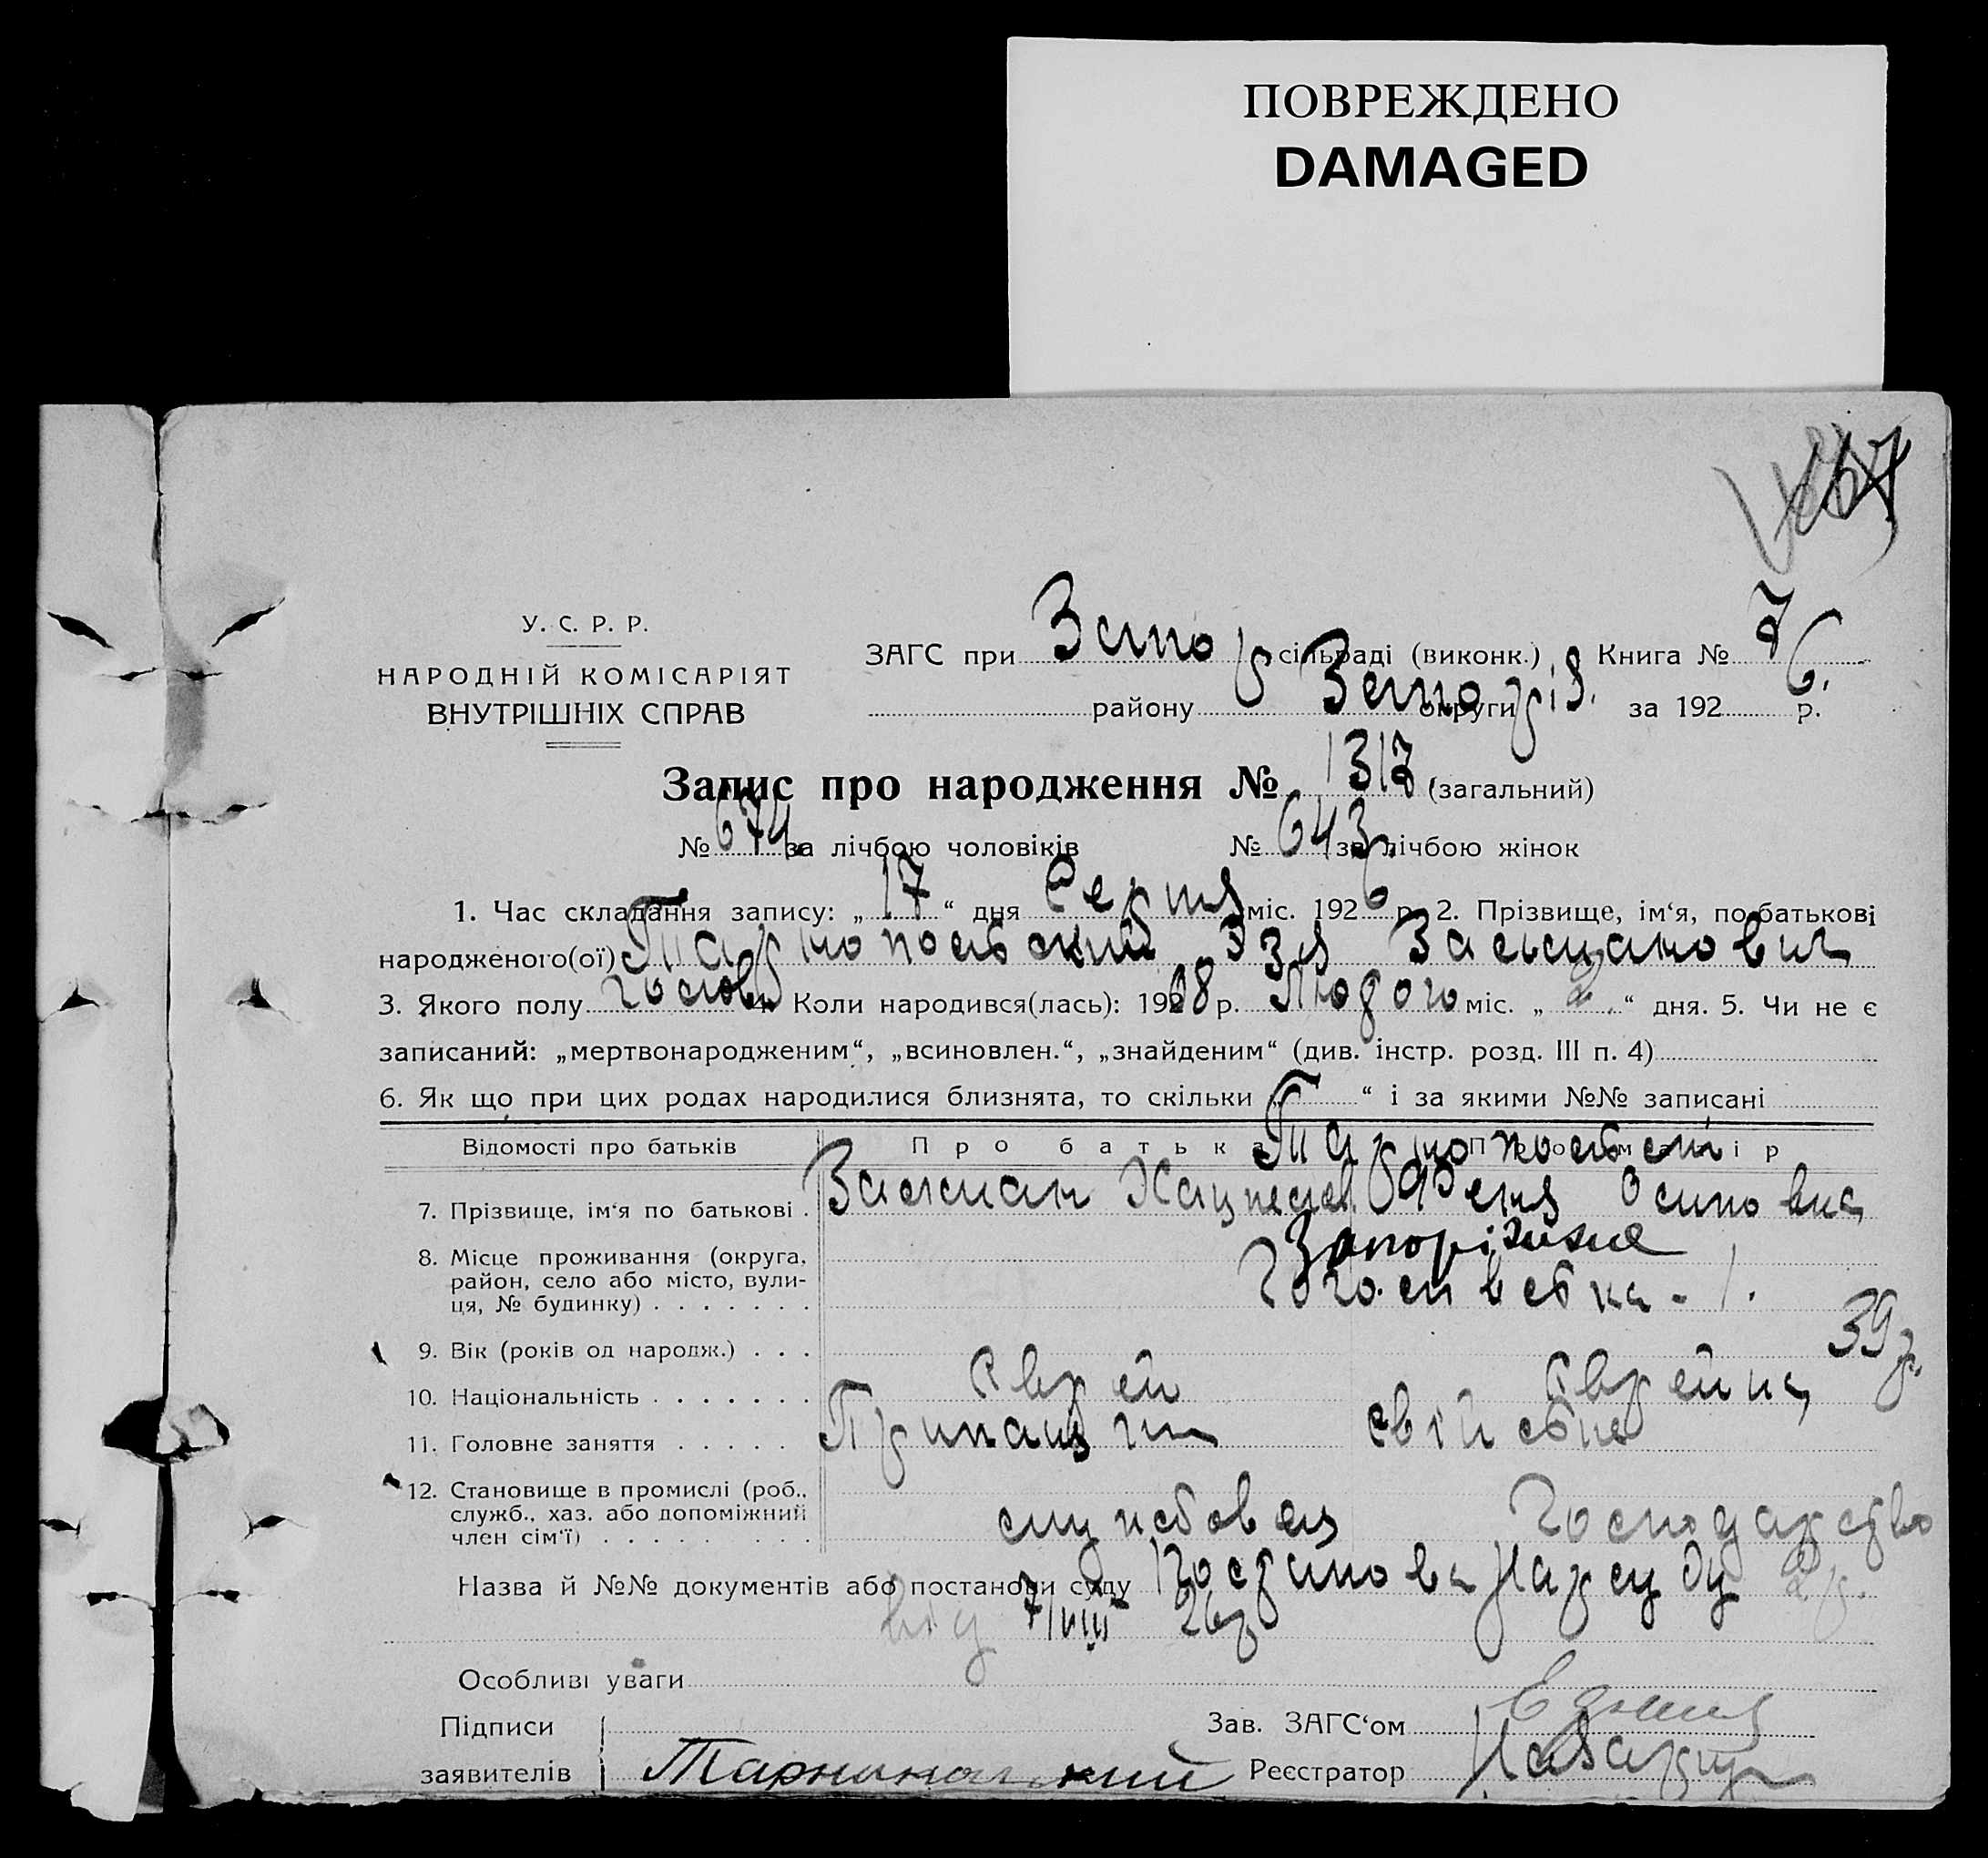 ПОВРЕЖДЕНО
DAMAGED
У. С. Р. Р.
НАРОДНІЙ КОМІСАРІЯТ
ВНУТРІШНІХ СПРАВ
ЗАГС при Запор сільраді (виконк.) Книга № 7
району Запоріз. округи за 1926. р.
Запис про народження № 1317 (загальний)
№ 674 за лічбою чоловіків № 643 за лічбою жінок
1. Час складання запису: „17“ дня Серпня міс. 1926 р. 2. Прізвище, ім‘я, по батькові
народженого(ої) Тарнопольский Зязя
3. Якого полу чолов. 4. Коли народився(лась): 1908 р. Лютого міс. „2“ дня. 5. Чи не є
записаний: „мертвонародженим“, „всиновлен.“, „знайденим“ (див. інстр. розд. III п. 4)
6. Як що при цих родах народилися близнята, то скільки „ “ і за якими №№ записані
Відомості про батьків Про батька Про матір
Тарнопольскі
7. Прізвище, ім‘я по батькові . Залман Феня Осиповна
8. Місце проживання (округа, район, село або місто, вули-ця, № будинку) . . . . . . . Запоріжже
Гоголівська - 1.
9. Вік (років од народж.) . . . 39 р.
10. Національність . . . . . . . Єврей Єврейка
11. Головне заняття . . . . . Прикащик свійське
12. Становище в промислі (роб.,
служб., хаз. або допоміжний
член сім‘ї) . . . . . . . . службовец господарство
Назва й №№ документів або постанови суду Постанова Нарсуду 2 р.
від 7/VIII 26 р
Особливі уваги
Підписи Зав. ЗАГС‘ом
заявителів Тарнопольский Реєстратор